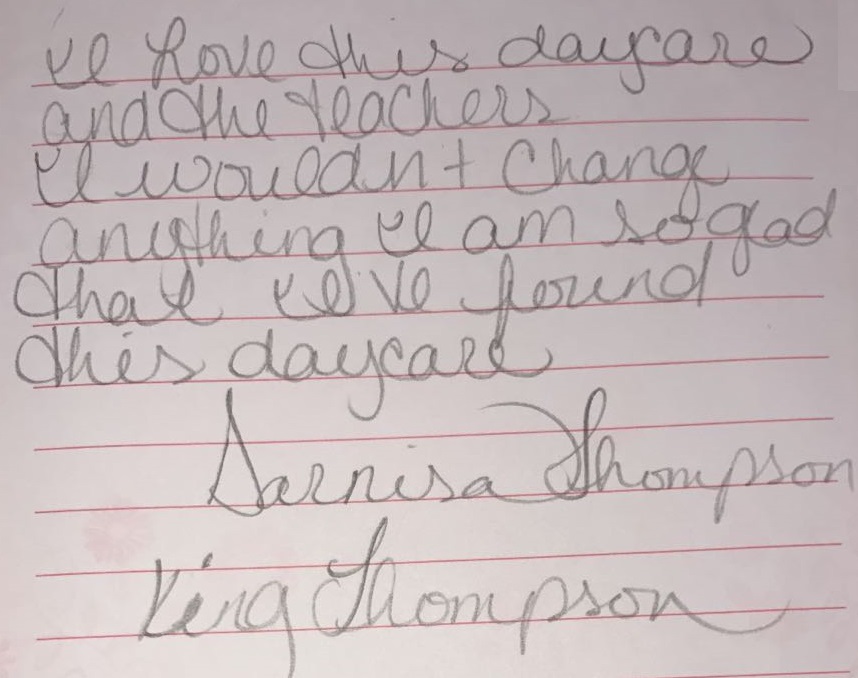 I Love this daycare
and the teachers
I wouldn't change
anything I am so glad
that I've found
this daycare
Darnisa Thompson
King Thompson